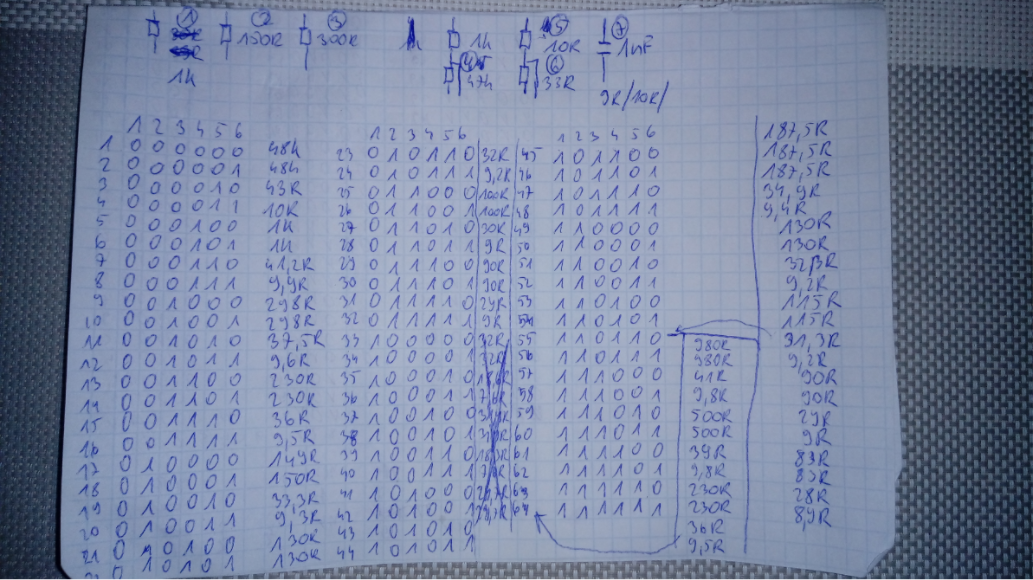 1 2 3 5 7
150R 300R 1k 10R 1uF
1k 4 47k 6 33R
9R/10R/
1 2 3 4 5 6
1 0 0 0 0 0 0 48k
2 0 0 0 0 0 1 48k
3 0 0 0 0 1 0 43R
4 0 0 0 0 1 1 10R
5 0 0 0 1 0 0 1k
6 0 0 0 1 0 1 1k
7 0 0 0 1 1 0 41,2R
8 0 0 0 1 1 1 9,9R
9 0 0 1 0 0 0 298R
10 0 0 1 0 0 1 298R
11 0 0 1 0 1 0 37,5R
12 0 0 1 0 1 1 9,6R
13 0 0 1 1 0 0 230R
14 0 0 1 1 0 1 230R
15 0 0 1 1 1 0 36R
16 0 0 1 1 1 1 9,5R
17 0 1 0 0 0 0 149R
18 0 1 0 0 0 1 150R
19 0 1 0 0 1 0 33,3R
20 0 1 0 0 1 1 9,3R
21 0 1 0 1 0 0 130R
0 1 0 1 0 1 130R
1 2 3 4 5 6
23 0 1 0 1 1 0 32R
24 0 1 0 1 1 1 9,2R
25 0 1 1 0 0 0 100R
26 0 1 1 0 0 1 100R
27 0 1 1 0 1 0 30R
28 0 1 1 0 1 1 9R
29 0 1 1 1 0 0 90R
30 0 1 1 1 0 1 90R
31 0 1 1 1 1 0 29R
32 0 1 1 1 1 1 9R
33 1 0 0 0 0 0
34 1 0 0 0 0 1
35 1 0 0 0 1 0
36 1 0 0 0 1 1
37 1 0 0 1 0 0
38 1 0 0 1 0 1
39 1 0 0 1 1 0
40 1 0 0 1 1 1
41 1 0 1 0 0 0
42 1 0 1 0 0 1
43 1 0 1 0 1 0
44 1 0 1 0 1 1
1 2 3 4 5 6
45 1 0 1 1 0 0
46 1 0 1 1 0 1
47 1 0 1 1 1 0
48 1 0 1 1 1 1
49 1 1 0 0 0 0
50 1 1 0 0 0 1
51 1 1 0 0 1 0
52 1 1 0 0 1 1
53 1 1 0 1 0 0
54 1 1 0 1 0 1
55 1 1 0 1 1 0
56 1 1 0 1 1 1
57 1 1 1 0 0 0
58 1 1 1 0 0 1
59 1 1 1 0 1 0
60 1 1 1 0 1 1
61 1 1 1 1 0 0
62 1 1 1 1 0 1
63 1 1 1 1 1 0
64 1 1 1 1 1 1
980R
980R
41R
9,8R
500R
500R
39R
9,8R
230R
230R
36R
9,5R
187,5R
187,5R
187,5R
34,9R
9,4R
130R
130R
32,3R
9,2R
115R
115R
31,3R
9,2R
90R
90R
29R
9R
83R
83R
28R
8,9R